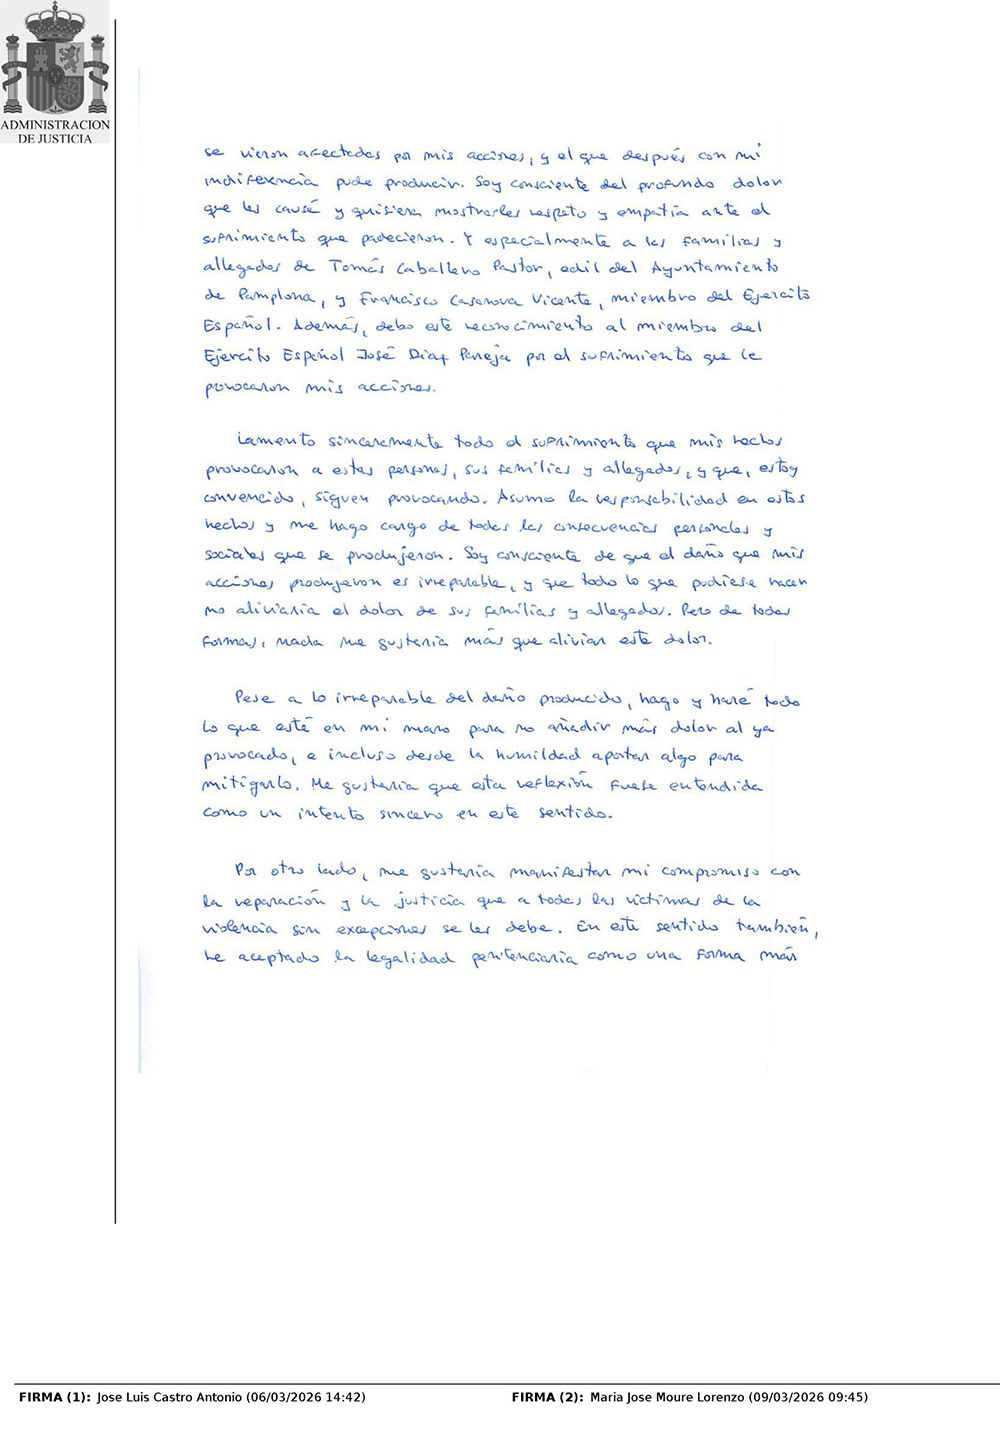 ADMINISTRACION
DE JUSTICIA
se vieron afectadas por mis acciones, y el que después con mi
indiferencia pude producir. Soy consciente del profundo dolor
que les causé y quisiera mostrarles respeto y empatía ante el
sufrimiento que padecieron. Y especialmente a las familias y
allegados de Tomás Caballero Pastor, edil del Ayuntamiento
de Pamplona, y Francisco Casanova Vicente, miembro del Ejercito
Español. Además, debo este reconocimiento al miembro del
Ejercito Español José Díaz Pareja por el sufrimiento que le
provocaron mis acciones.
Lamento sinceramente todo el sufrimiento que mis hechos
provocaron a estas personas, sus familias y allegados, y que, estoy
convencido, siguen provocando. Asumo la responsabilidad en estos
hechos y me hago cargo de todas las consecuencias personales y
sociales que se produjeron. Soy consciente de que el daño que mis
acciones produjeron es irreparable, y que todo lo que pudiese hacer
no aliviaria el dolor de sus familias y allegados. Pero de todas
formas, nada me gustaria más que aliviar este dolor.
Pese a lo irreparable del daño producido, hago y haré todo
lo que esté en mi mano para no añadir más dolor al ya
provocado, e incluso desde la humildad aportar algo para
mitigarlo. Me gustaria que esta reflexión fuese entendida
como un intento sincero en este sentido.
Por otro lado, me gustaría manifestar mi compromiso con
la reparación y la justicia que a todas las victimas de la
violencia sin excepciones se les debe. En este sentido también,
he aceptado la legalidad penitenciaria como una forma más
FIRMA (1): Jose Luis Castro Antonio (06/03/2026 14:42)
FIRMA (2): Maria Jose Moure Lorenzo (09/03/2026 09:45)